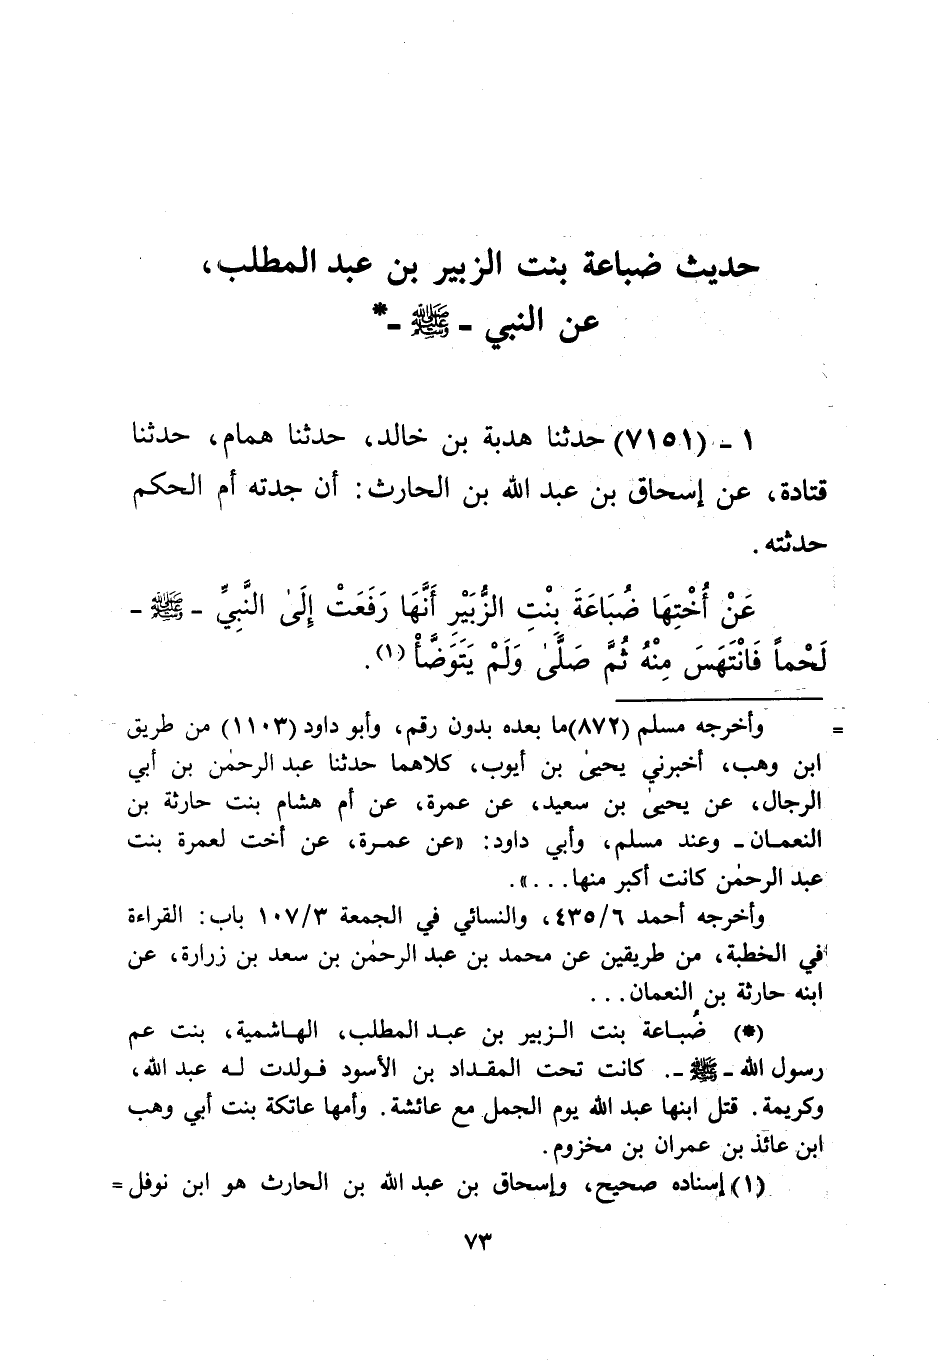 حديث ضباعة بنت الزبير بن عبد المطلب،
عن النبي - ﷺ -*
١ - (٧١٥١) حدثنا هدبة بن خالد، حدثنا همام، حدثنا
قتادة، عن إسحاق بن عبد الله بن الحارث: أن جدته أم الحكم
حدثته.
عَنْ أُخْتِهَا ضُبَاعَةَ بِنْتِ الزُّبَيْرِ أَنَّهَا رَفَعَتْ إِلَىٰ النَّبِيِّ - ﷺ -
لَحْماً فَانْتَهَسَ مِنْهُ ثُمَّ صَلَّىٰ وَلَمْ يَتَوَضَّأْ (١).
= وأخرجه مسلم (٨٧٢) ما بعده بدون رقم، وأبو داود (١١٠٣) من طريق
ابن وهب، أخبرني يحيىٰ بن أيوب، كلاهما حدثنا عبد الرحمٰن بن أبي
الرجال، عن يحيىٰ بن سعيد، عن عمرة، عن أم هشام بنت حارثة بن
النعمان - وعند مسلم، وأبي داود: «عن عمرة، عن أخت لعمرة بنت
عبد الرحمٰن كانت أكبر منها...».
وأخرجه أحمد ٤٣٥/٦، والنسائي في الجمعة ١٠٧/٣ باب: القراءة
في الخطبة، من طريقين عن محمد بن عبد الرحمٰن بن سعد بن زرارة، عن
ابنه حارثة بن النعمان...
(*) ضُباعة بنت الزبير بن عبد المطلب، الهاشمية، بنت عم
رسول الله - ﷺ -. كانت تحت المقداد بن الأسود فولدت له عبد الله،
وكريمة. قتل ابنها عبد الله يوم الجمل مع عائشة. وأمها عاتكة بنت أبي وهب
ابن عائذ بن عمران بن مخزوم.
(١) إسناده صحيح، وإسحاق بن عبد الله بن الحارث هو ابن نوفل =
٧٣